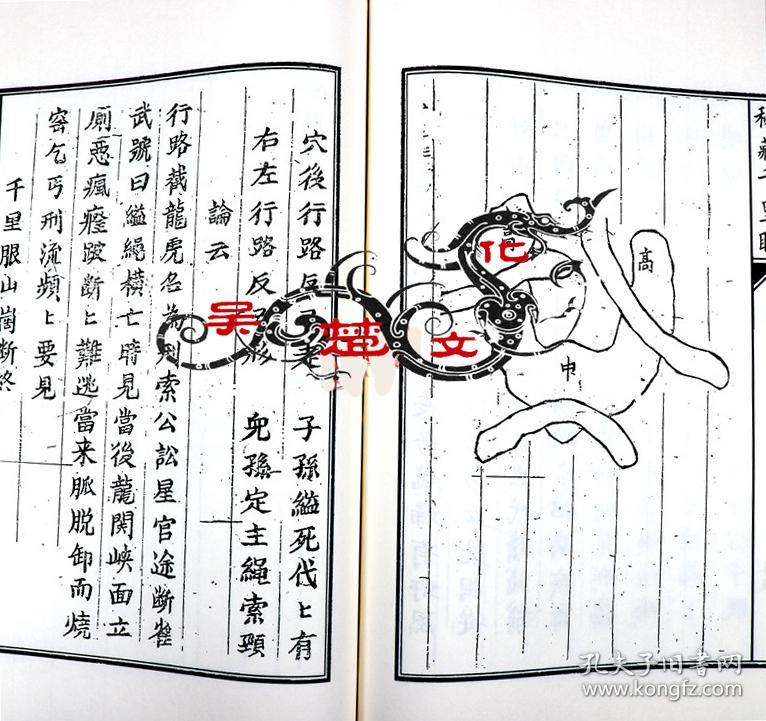 秘藏千里眼
高
中
穴後行路反
子孫縊死代〻有
右左行路反
兒孫定主繩索頸
論云
行路截龍虎名為
索公訟星官途斷雀
武號曰縊繩橫亡暗見當後龍関峽面立
廁惡瘋癦跛斷〻難逃當来脈脱卸而燒
窑乞丐刑流頻〻要見
千里眼山崗斷終
吴楚文化
孔夫子旧书网
www.kongfz.com